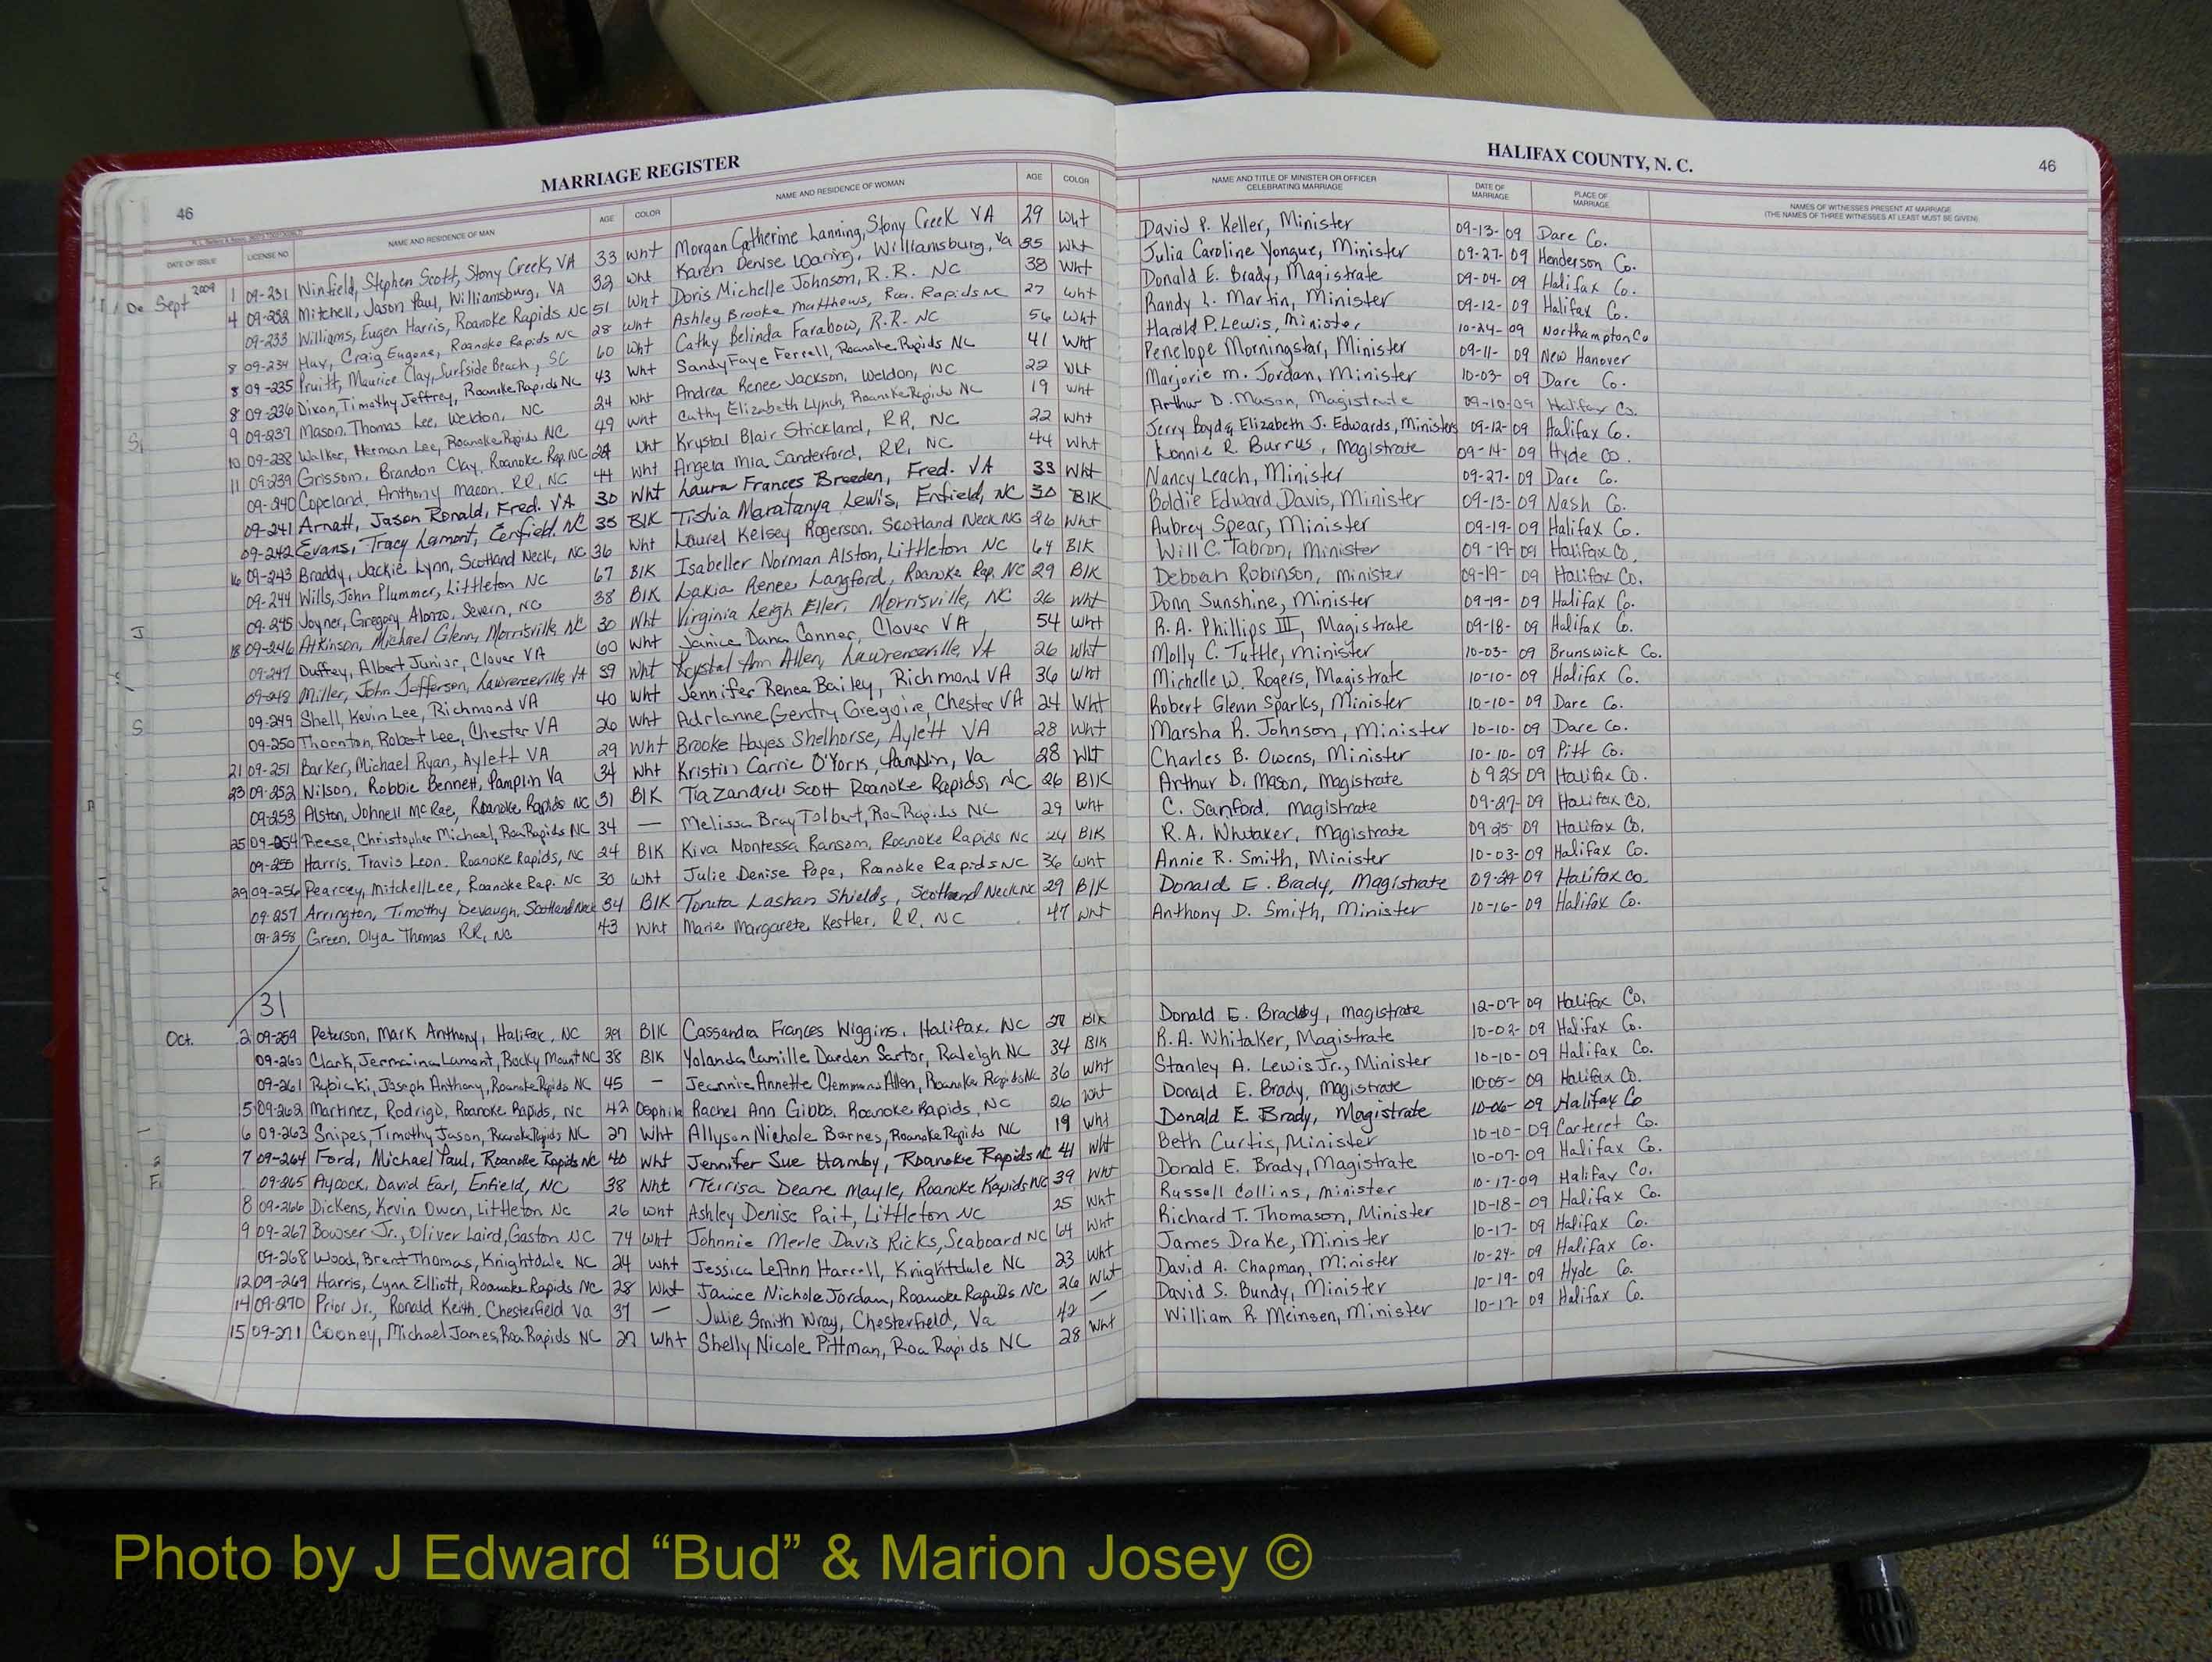 MARRIAGE REGISTER
46
DATE OF ISSUE LICENSE NO NAME AND RESIDENCE OF MAN AGE COLOR NAME AND RESIDENCE OF WOMAN AGE COLOR
Sept 2009 1 09-231 Winfield, Stephen Scott, Stony Creek, VA 33 Wht Morgan Catherine Lanning, Stony Creek VA 29 Wht
4 09-232 Mitchell, Jason Paul, Williamsburg, VA 32 Wht Karen Denise Waring, Williamsburg, Va 35 Wht
09-233 Williams, Eugen Harris, Roanoke Rapids NC 51 Wht Doris Michelle Johnson, R.R. NC 38 Wht
8 09-234 Hux, Craig Eugene, Roanoke Rapids NC 28 Wht Ashley Brooke Matthews, Roa. Rapids NC 27 Wht
8 09-235 Pruitt, Maurice Clay, Surfside Beach, SC 60 Wht Cathy Belinda Farabow, R.R. NC 56 Wht
8 09-236 Dixon, Timothy Jeffrey, Roanoke Rapids NC 43 Wht Sandy Faye Ferrell, Roanoke Rapids NC 41 Wht
9 09-237 Mason, Thomas Lee, Weldon, NC 24 Wht Andrea Renee Jackson, Weldon, NC 22 Wht
10 09-238 Walker, Herman Lee, Roanoke Rapids NC 49 Wht Cathy Elizabeth Lynch, Roanoke Rapids NC 19 Wht
11 09-239 Grissom, Brandon Clay, Roanoke Rap. NC Wht Krystal Blair Strickland, RR, NC 22 Wht
09-240 Copeland, Anthony Macon, RR, NC 44 Wht Angela Mia Sanderford, RR, NC 44 Wht
09-241 Arnatt, Jason Ronald, Fred. VA 30 Wht Laura Frances Breeden, Fred. VA 33 Wht
09-242 Evans, Tracy Lamont, Enfield, NC 35 Blk Tishia Maratanya Lewis, Enfield, NC 30 Blk
16 09-243 Braddy, Jackie Lynn, Scotland Neck, NC 36 Wht Laurel Kelsey Rogerson, Scotland Neck NC 26 Wht
09-244 Wills, John Plummer, Littleton NC 67 Blk Isabeller Norman Alston, Littleton NC 64 Blk
09-245 Joyner, Gregory Alonzo, Severn, NC 38 Blk Lakia Renee Langford, Roanoke Rap. NC 29 Blk
18 09-246 Atkinson, Michael Glenn, Morrisville, NC 30 Wht Virginia Leigh Eller, Morrisville, NC 26 Wht
09-247 Duffey, Albert Junior, Clover VA 60 Wht Janice Dana Conner, Clover VA 54 Wht
09-248 Miller, John Jefferson, Lawrenceville, VA 39 Wht Krystal Ann Allen, Lawrenceville, VA 26 Wht
09-249 Shell, Kevin Lee, Richmond VA 40 Wht Jennifer Renea Bailey, Richmond VA 36 Wht
09-250 Thornton, Robert Lee, Chester VA 26 Wht Adrianne Gentry Gregoire, Chester VA 24 Wht
21 09-251 Barker, Michael Ryan, Aylett VA 29 Wht Brooke Hayes Shelhorse, Aylett VA 28 Wht
23 09-252 Wilson, Robbie Bennett, Pamplin Va 34 Wht Kristin Carrie O'York, Pamplin, Va 28 Wht
09-253 Alston, Johnell McRae, Roanoke Rapids NC 31 Blk Tiazandrell Scott Roanoke Rapids, NC 26 Blk
25 09-254 Reese, Christopher Michael, Roa Rapids NC 34 — Melissa Bray Tolbert, Roa Rapids NC 29 Wht
09-255 Harris, Travis Leon, Roanoke Rapids, NC 24 Blk Kiva Montessa Ransom, Roanoke Rapids NC 24 Blk
29 09-256 Pearcey, Mitchell Lee, Roanoke Rap. NC 30 Wht Julie Denise Pope, Roanoke Rapids NC 36 Wht
09-257 Arrington, Timothy Devaugh, Scotland Neck 34 Blk Toneta Lashan Shields, Scotland Neck NC 29 Blk
09-258 Green, Olya Thomas RR, NC 43 Wht Marie Margarete Kestler, RR, NC 47 Wht
31
Oct. 2 09-259 Peterson, Mark Anthony, Halifax, NC 39 Blk Cassandra Frances Wiggins, Halifax, NC Blk
09-260 Clark, Jermaine Lamont, Rocky Mount NC 38 Blk Yolanda Camille Darden Sartor, Raleigh NC 34 Blk
09-261 Rybicki, Joseph Anthony, Roanoke Rapids NC 45 — Jeannie Annette Clemmons Allen, Roanoke Rapids NC 36 Wht
5 09-262 Martinez, Rodrigo, Roanoke Rapids, NC 42 Rachel Ann Gibbs, Roanoke Rapids, NC 26 Wht
6 09-263 Snipes, Timothy Jason, Roanoke Rapids NC 27 Wht Allyson Nichole Barnes, Roanoke Rapids NC 19 Wht
7 09-264 Ford, Michael Paul, Roanoke Rapids NC 40 Wht Jennifer Sue Hamby, Roanoke Rapids NC 41 Wht
09-265 Aycock, David Earl, Enfield, NC 38 Wht Terrisa Deane Mayle, Roanoke Rapids NC 39 Wht
8 09-266 Dickens, Kevin Owen, Littleton NC 26 Wht Ashley Denise Pait, Littleton NC 25 Wht
9 09-267 Bowser Jr., Oliver Laird, Gaston NC 74 Wht Johnnie Merle Davis Ricks, Seaboard NC 64 Wht
09-268 Wood, Brent Thomas, Knightdale NC 24 Wht Jessica LeAnn Harrell, Knightdale NC 23 Wht
12 09-269 Harris, Lynn Elliott, Roanoke Rapids NC 28 Wht Janice Nichole Jordan, Roanoke Rapids NC 26 Wht
14 09-270 Prior Jr., Ronald Keith, Chesterfield Va 37 — Julie Smith Wray, Chesterfield, Va 42 —
15 09-271 Cooney, Michael James, Roa Rapids NC 27 Wht Shelly Nicole Pittman, Roa Rapids NC 28 Wht
HALIFAX COUNTY, N. C.
46
NAME AND TITLE OF MINISTER OR OFFICER CELEBRATING MARRIAGE DATE OF MARRIAGE PLACE OF MARRIAGE NAMES OF WITNESSES PRESENT AT MARRIAGE
(THE NAMES OF THREE WITNESSES AT LEAST MUST BE GIVEN)
David P. Keller, Minister 09-13-09 Dare Co.
Julia Caroline Yongue, Minister 09-27-09 Henderson Co.
Donald E. Brady, Magistrate 09-04-09 Halifax Co.
Randy L. Martin, Minister 09-12-09 Halifax Co.
Harold P. Lewis, Minister 10-24-09 Northampton Co
Penelope Morningstar, Minister 09-11-09 New Hanover
Marjorie M. Jordan, Minister 10-03-09 Dare Co.
Arthur D. Mason, Magistrate 09-10-09 Halifax Co.
Jerry Boyd & Elizabeth J. Edwards, Ministers 09-12-09 Halifax Co.
Lonnie R. Burrus, Magistrate 09-14-09 Hyde Co.
Nancy Leach, Minister 09-27-09 Dare Co.
Boldie Edward Davis, Minister 09-13-09 Nash Co.
Aubrey Spear, Minister 09-19-09 Halifax Co.
Will C. Tabron, Minister 09-19-09 Halifax Co.
Deborah Robinson, Minister 09-19-09 Halifax Co.
Donn Sunshine, Minister 09-19-09 Halifax Co.
R.A. Phillips III, Magistrate 09-18-09 Halifax Co.
Molly C. Tuttle, Minister 10-03-09 Brunswick Co.
Michelle W. Rogers, Magistrate 10-10-09 Halifax Co.
Robert Glenn Sparks, Minister 10-10-09 Dare Co.
Marsha R. Johnson, Minister 10-10-09 Dare Co.
Charles B. Owens, Minister 10-10-09 Pitt Co.
Arthur D. Mason, Magistrate 09 25 09 Halifax Co.
C. Sanford, Magistrate 09-27-09 Halifax Co.
R.A. Whitaker, Magistrate 09 25 09 Halifax Co.
Annie R. Smith, Minister 10-03-09 Halifax Co.
Donald E. Brady, Magistrate 09-29-09 Halifax Co.
Anthony D. Smith, Minister 10-16-09 Halifax Co.
Donald E. Brady, Magistrate 12-07-09 Halifax Co.
R.A. Whitaker, Magistrate 10-02-09 Halifax Co.
Stanley A. Lewis Jr., Minister 10-10-09 Halifax Co.
Donald E. Brady, Magistrate 10-05-09 Halifax Co.
Donald E. Brady, Magistrate 10-06-09 Halifax Co
Beth Curtis, Minister 10-10-09 Carteret Co.
Donald E. Brady, Magistrate 10-07-09 Halifax Co.
Russell Collins, Minister 10-17-09 Halifax Co.
Richard T. Thomason, Minister 10-18-09 Halifax Co.
James Drake, Minister 10-17-09 Halifax Co.
David A. Chapman, Minister 10-24-09 Halifax Co.
David S. Bundy, Minister 10-19-09 Hyde Co.
William R. Meinsen, Minister 10-17-09 Halifax Co.
Photo by J Edward “Bud” & Marion Josey ©